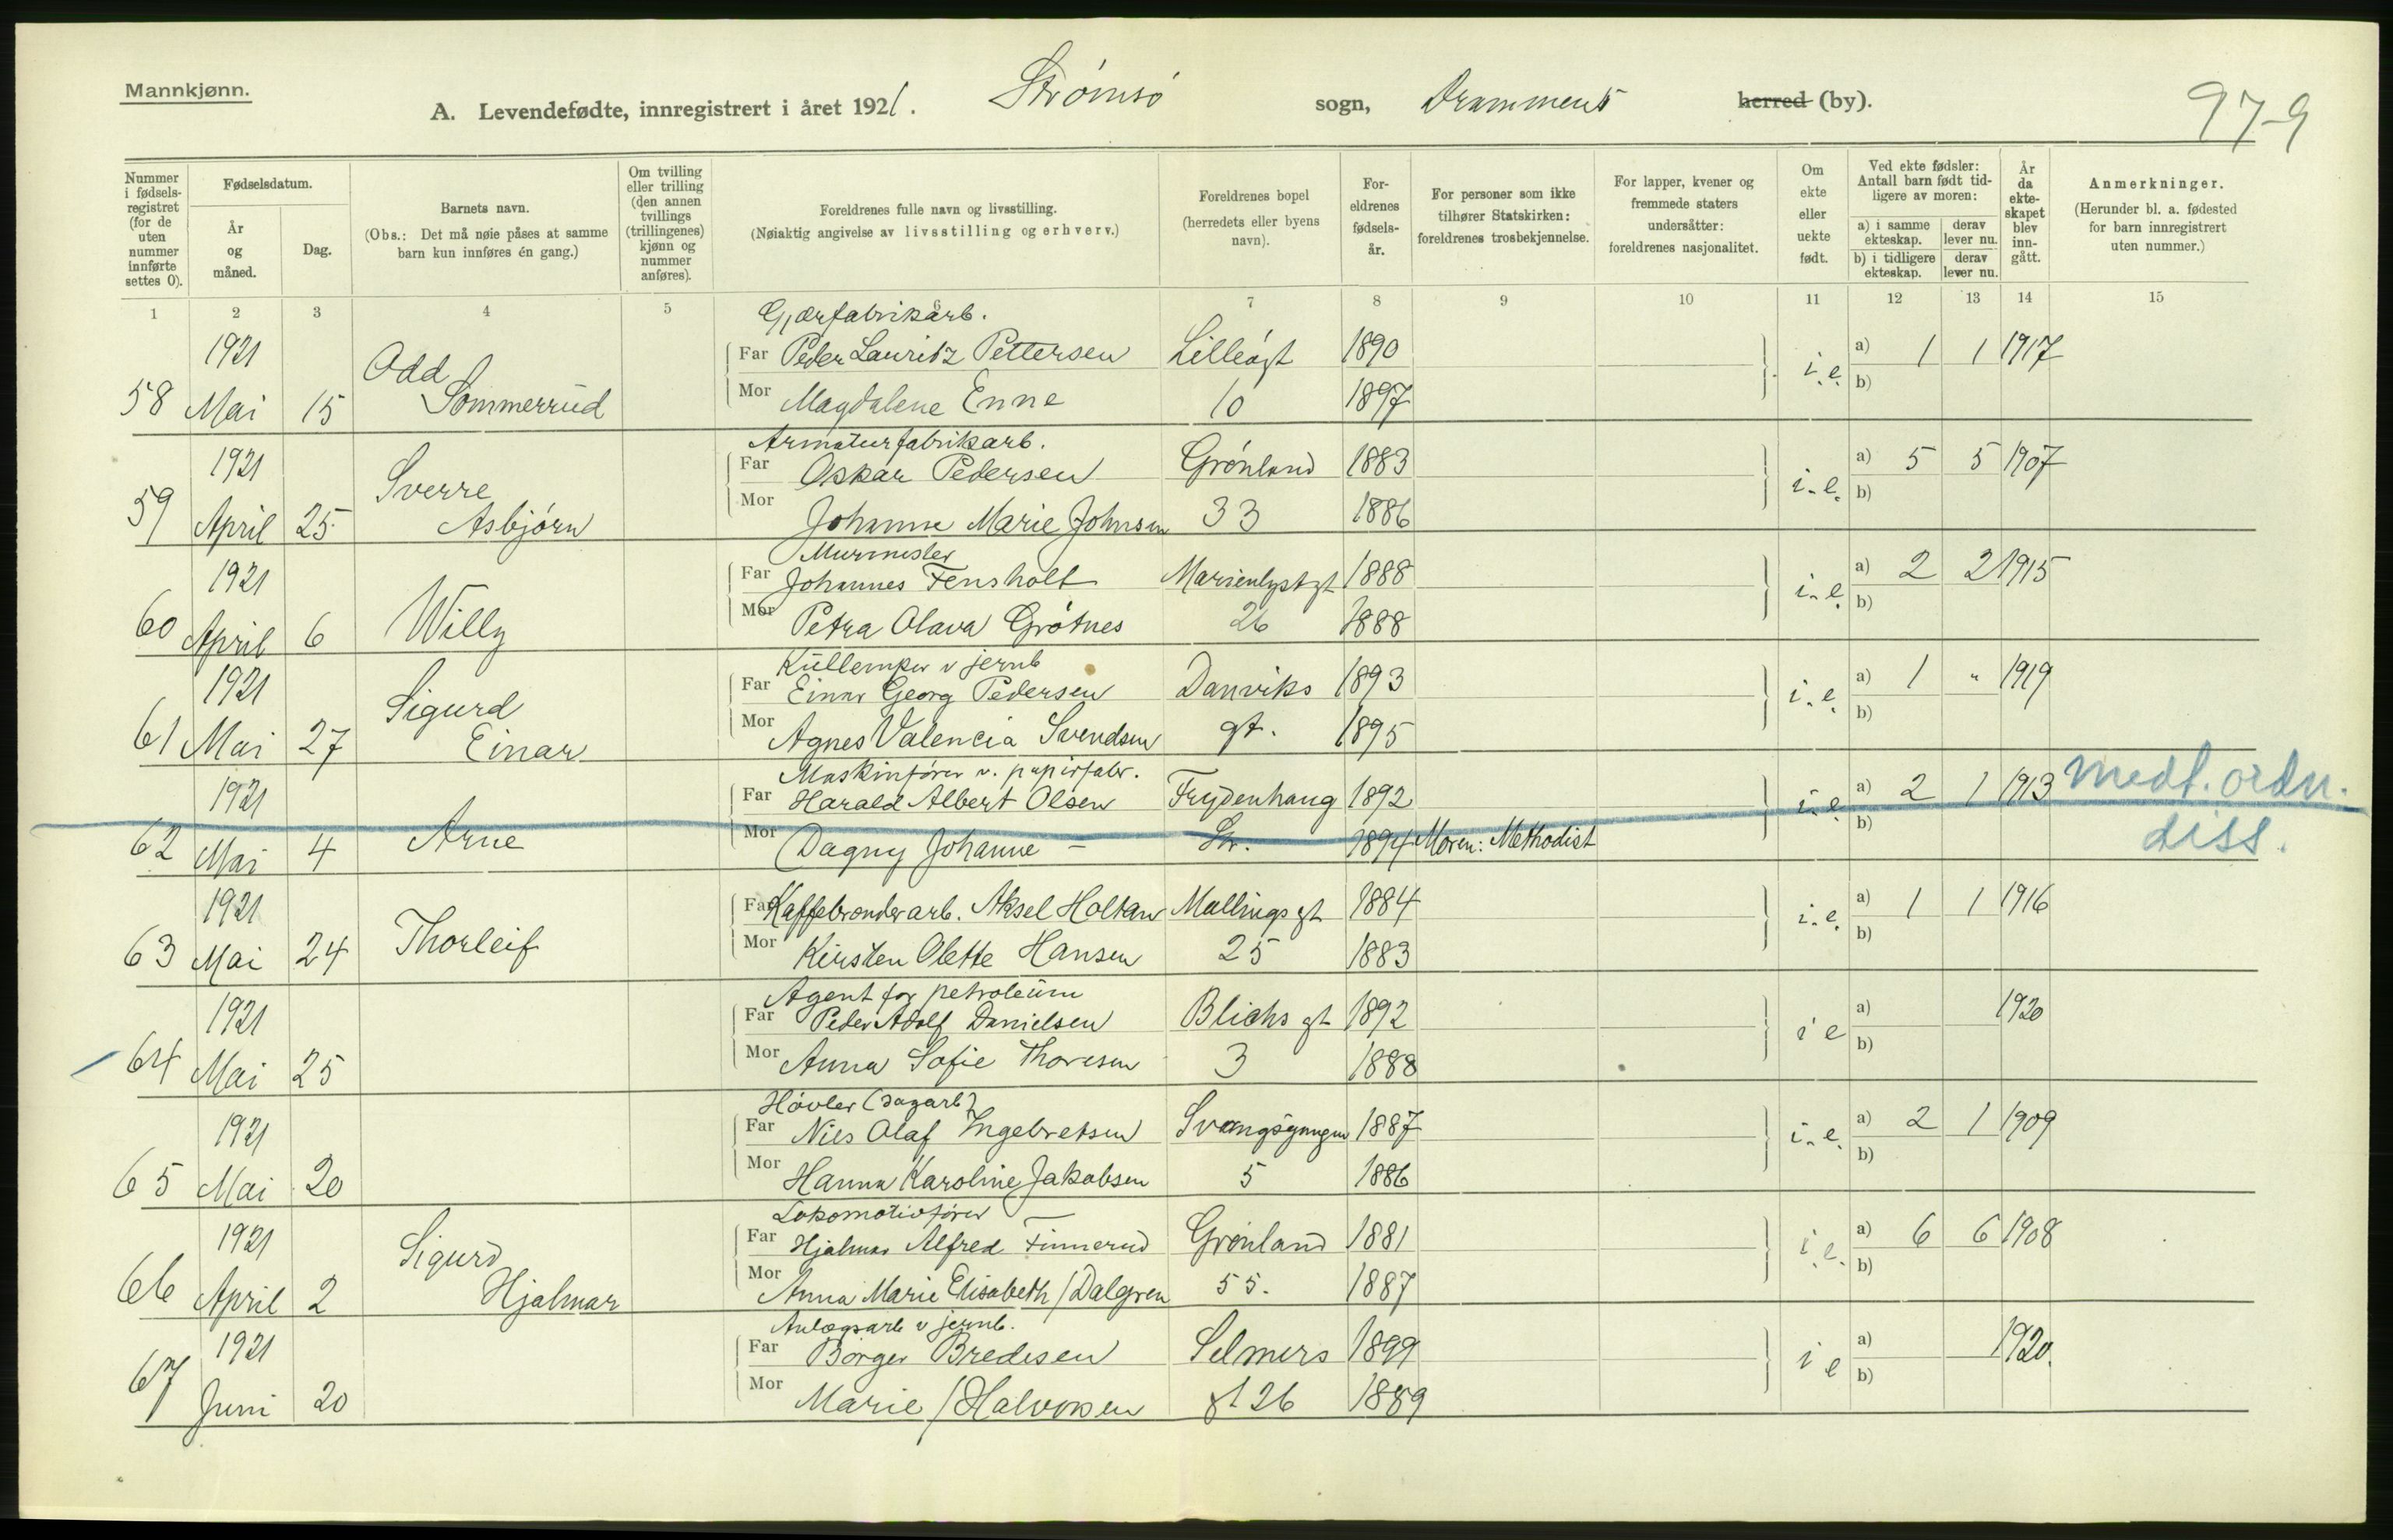 Mannkjønn.
A. Levendefødte, innregistrert i året 1921. Strømsø sogn, Drammens herred (by).
97-9
Nummer i fødselsregistret (for de uten nummer innførte settes 0).
Fødselsdatum.
År og måned.
Dag.
Barnets navn.
(Obs.: Det må nøie påses at samme barn kun innføres én gang.)
Om tvilling eller trilling (den annen tvillings (trillingenes) kjønn og nummer anføres).
Foreldrenes fulle navn og livsstilling.
(Nøiaktig angivelse av livsstilling og erhverv.)
Foreldrenes bopel
(herredets eller byens navn).
Foreldrenes fødselsår.
For personer som ikke tilhører Statskirken: foreldrenes trosbekjennelse.
For lapper, kvener og fremmede staters undersåtter: foreldrenes nasjonalitet.
Om ekte eller uekte født.
Ved ekte fødsler: Antall barn født tidligere av moren:
a) i samme ekteskap. derav lever nu.
b) i tidligere ekteskap. derav lever nu.
År da ekteskapet blev inngått.
Anmerkninger.
(Herunder bl. a. fødested for barn innregistrert uten nummer.)
1 2 3 4 5 6 7 8 9 10 11 12 13 14 15
Gjærfabrikarb.
1921 Odd Far Peder Lauritz Pettersen Lilleøgt 1890 i.e. a) 1 1 1917
58 Mai 15 Sommerrud Mor Magdalene Enne 10 1897 b)
Armaturfabrikarb.
1921 Sverre Far Oskar Pedersen Grønland 1883 i.e. a) 5 5 1907
59 April 25 Asbjørn Mor Johanne Marie Johnsen 33 1886 b)
Murmester
1921 Far Johannes Fensholt Marienlystgt 1888 i.e. a) 2 2 1915
60 April 6 Willy Mor Petra Olava Grøtnes 26 1888 b)
Kullemper v jernb
1921 Sigurd Far Einar Georg Pedersen Danviks 1893 i.e. a) 1 " 1919
61 Mai 27 Einar Mor Agnes Valencia Svendsen gt. 1895 b)
Maskinfører v. papirfabr.
1921 Far Harald Albert Olsen Frydenhaug 1892 i.e. a) 2 1 1913 medt. ordn.
62 Mai 4 Arne Mor Dagny Johanne - 1894 Moren: Methodist b) diss.
1921 Far Kaffebrenderarb. Aksel Holtan Mallings gt 1884 i.e. a) 1 1 1916
63 Mai 24 Thorleif Mor Kirsten Olette Hansen 25 1883 b)
Agent for petroleum
1921 Far Peder Adolf Danielsen Blichs gt 1892 i e a) 1920
64 Mai 25 Mor Anna Sofie Thoresen 3 1888 b)
Høvler (sagarb)
1921 Far Nils Olaf Ingebretsen Svangsgangen 1887 i.e. a) 2 1 1909
65 Mai 20 Mor Hanna Karoline Jakobsen 5 1886 b)
Lokomotivfører
1921 Sigurd Far Hjalmar Alfred Finnerud Grønland 1881 i.e. a) 6 6 1908
66 April 2 Hjalmar Mor Anna Marie Elisabeth / Dalgren 55. 1887 b)
Anlægsarb v jernb.
1921 Far Børger Bredesen Selmers 1899 i e a) 1920.
67 Juni 20 Mor Marie / Halvorsen gt 26 1889 b)